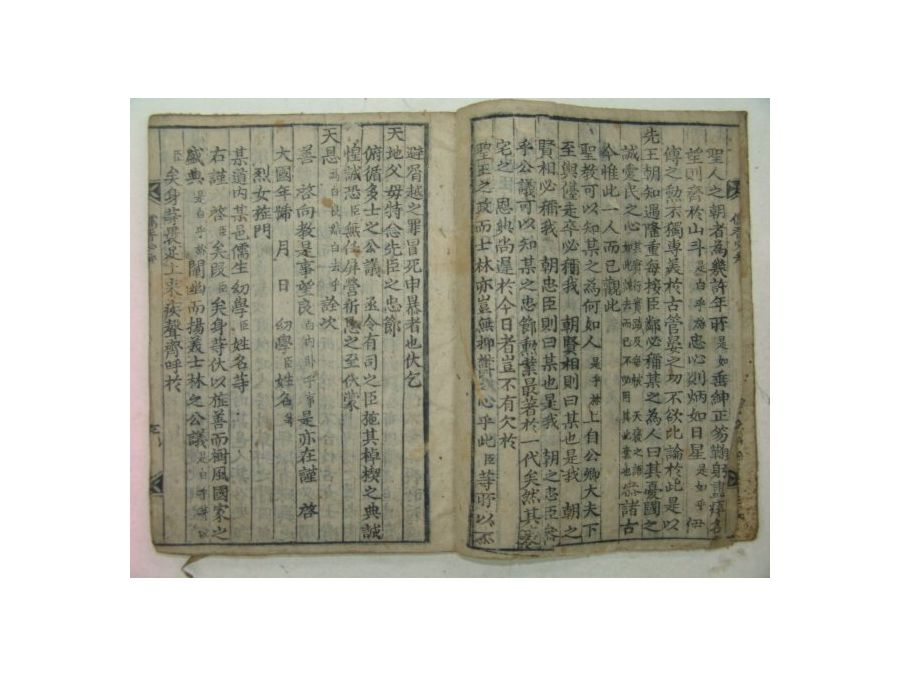 聖人之朝者為幾許年所是如垂紳正笏鞠躬盡瘁名
望則齊於山斗是白乎㫆忠心則炳如日星是如乎伊
傅之勳不獨專美於古管晏之功不欲比論於此是以
先王朝知遇隆重每接臣鄰必稱某之為人曰其憂國之
誠愛民之心求諸古
今惟此一人而已觀此
聖教可以知某之為何如人是乎㫆上自公卿大夫下
至輿儓走卒必稱我 朝賢相則曰某也是我 朝之
賢相必稱我 朝忠臣則曰某也是我 朝之忠臣
乎公議可以知某之忠節勳業最著於一代矣然其褒
宅之 恩典尚遲於今日者豈不有欠於
聖王之政而士林亦豈無抑鬱之心乎此臣等所以不
避屑越之罪冒死申暴者也伏乞
天地父母特念先臣之忠節
俯循多士之公議 丞令有司之臣施其棹楔之典誠
惶誠恐臣無任屏營祈懇之至伏蒙
天恩為白只為詮次
善 啓向教是事望良白內臥乎事是亦在謹 啓
大國年號 月 日 幼學臣姓名
烈女旌門
某道內某邑儒生幼學臣姓名等
右謹 啓臣矣段臣矣身等伏以旌善而樹風國家之
盛典是白乎㫆闡幽而揚義士林之公議是白乎等以
臣矣身等裹足上來疾聲齊呼於